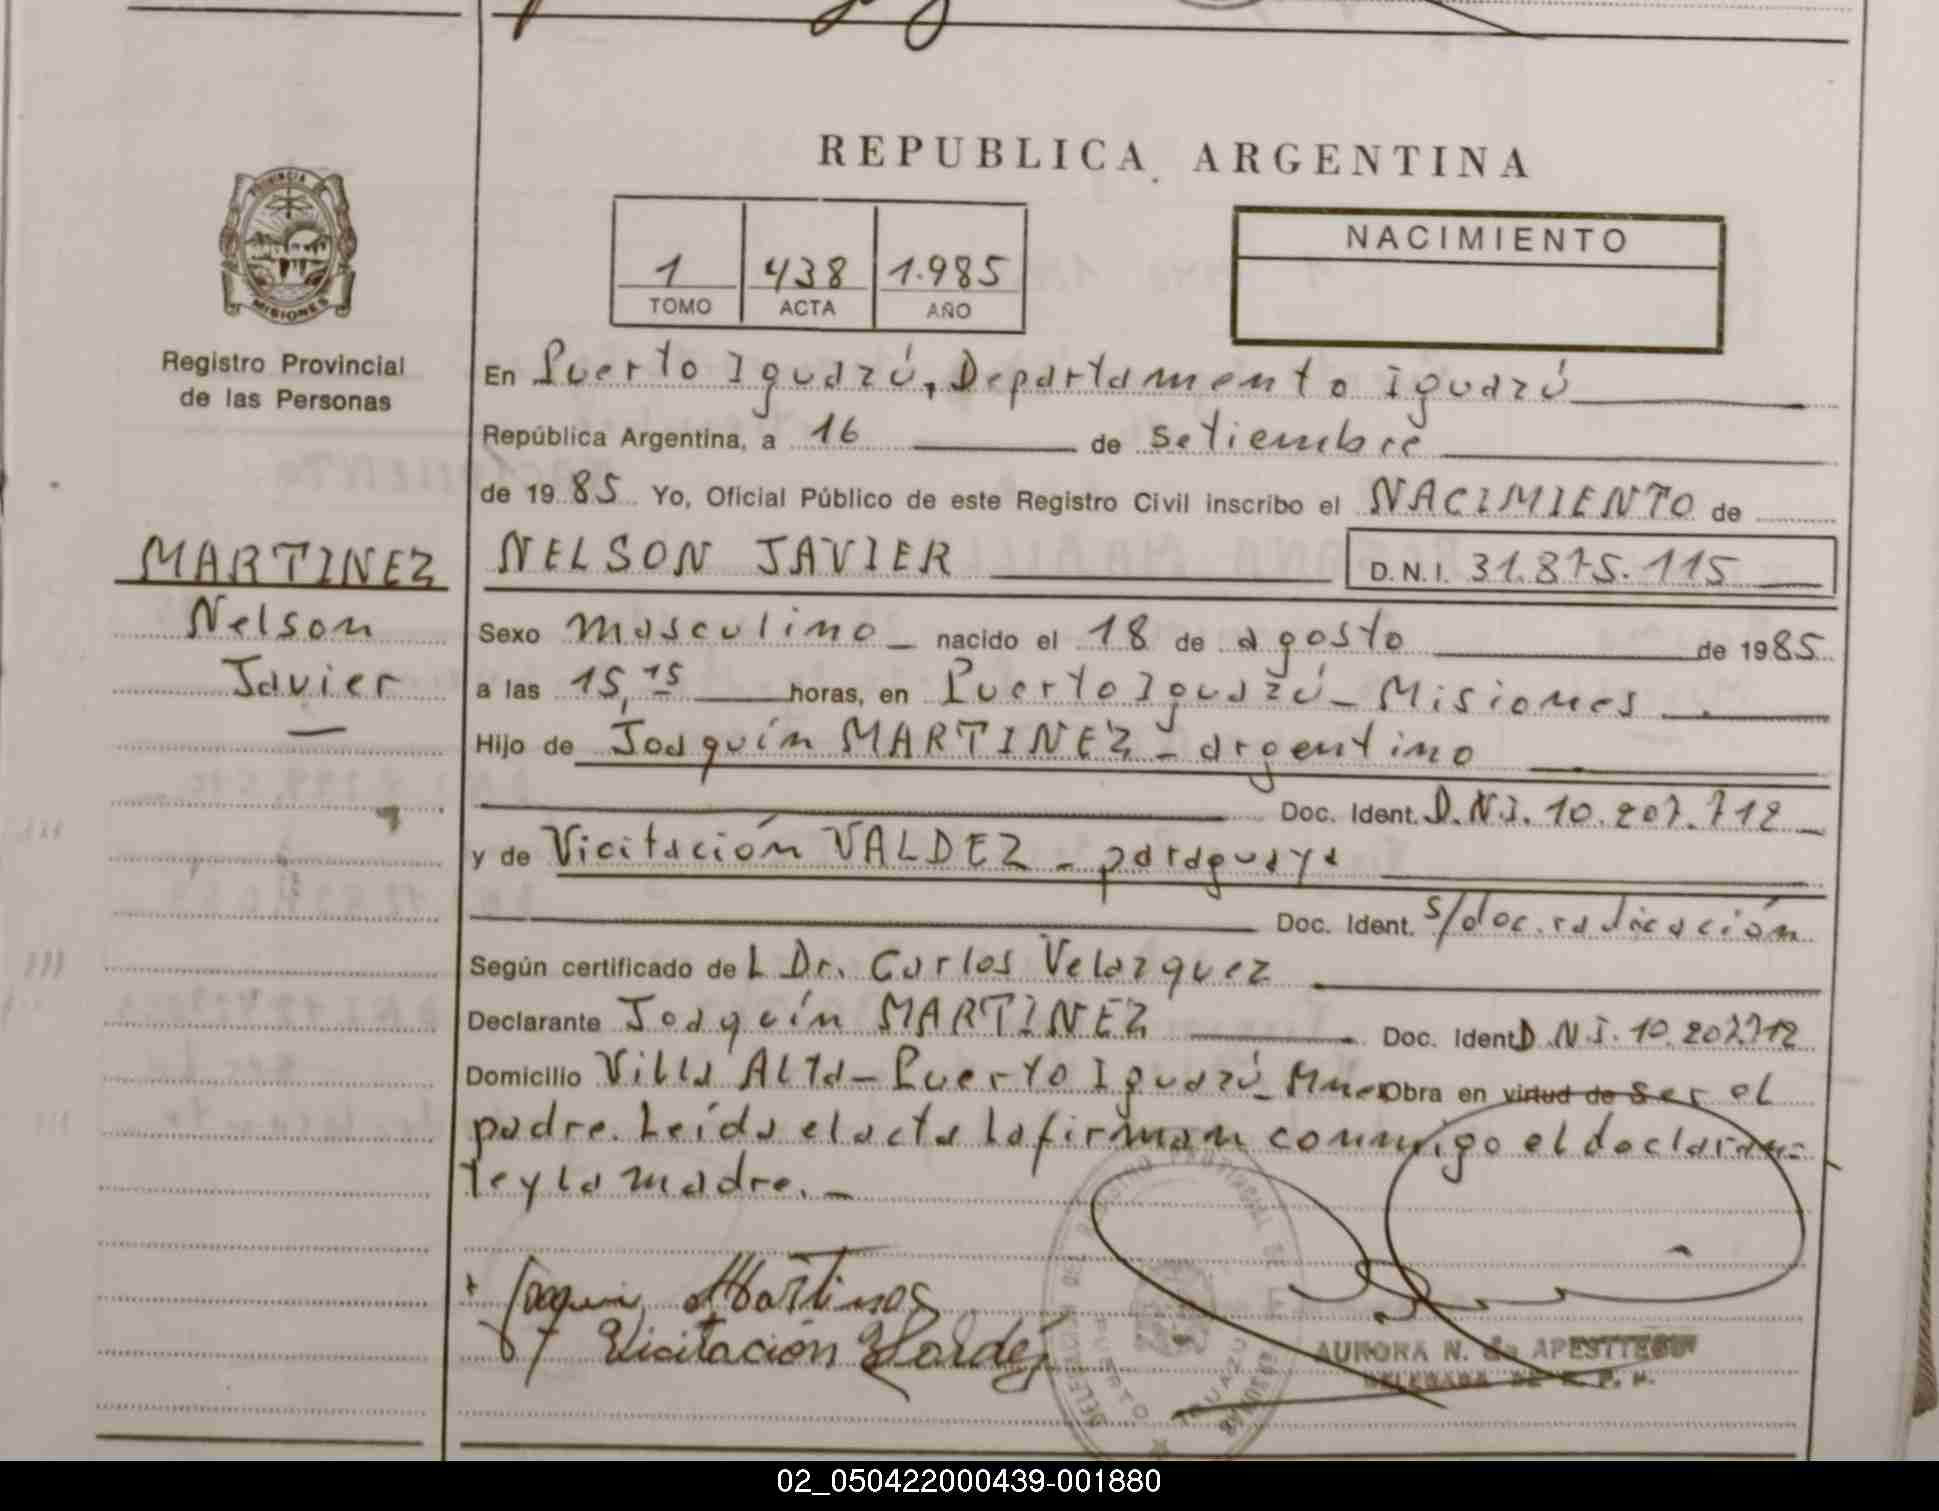 REPUBLICA ARGENTINA
PROVINCIA DE
MISIONES
Registro Provincial
de las Personas
1 438 1.985
TOMO ACTA AÑO
NACIMIENTO
En Puerto Iguazú, Departamento Iguazú
República Argentina, a 16 de setiembre
de 1985 Yo, Oficial Público de este Registro Civil inscribo el NACIMIENTO de
MARTINEZ
Nelson
Javier
NELSON JAVIER D.N.I. 31.875.115
Sexo masculino nacido el 18 de agosto de 1985
a las 15,15 horas, en Puerto Iguazú - Misiones
Hijo de Joaquín MARTINEZ - argentino
Doc. Ident. D.N.I. 10.207.712
y de Vicitación VALDEZ - paraguaya
Doc. Ident. s/doc. radicación
Según certificado de L Dr. Carlos Velazquez
Declarante Joaquín MARTINEZ Doc. Ident D.N.I. 10.207.712
Domicilio Villa Alta - Puerto Iguazú - Mnes Obra en virtud de Ser el
padre. Leída el acta la firman conmigo el declaran=
te y la madre. -
Joaquin Martines
Vicitación Valdéz
AURORA N. de APESTTEGUI
DELEGADA
02_050422000439-001880